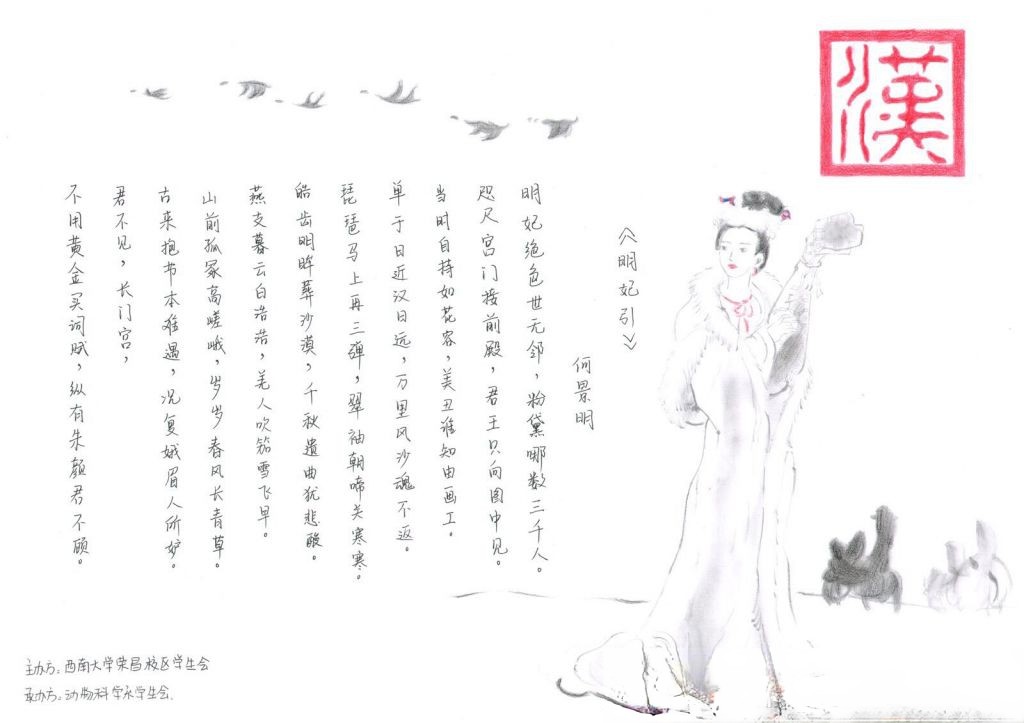 漢
《明妃引》
何景明
明妃绝色世无邻，粉黛哪数三千人。
咫尺宫门接前殿，君王只向图中见。
当时自持如花容，美丑谁知由画工。
单于日近汉日远，万里风沙魂不返。
琵琶马上再三弹，翠袖朝啼关寒寒。
皓齿明眸葬沙漠，千秋遗曲犹悲酸。
燕支暮云白浩浩，羌人吹笳雪飞早。
山前孤冢高嵯峨，岁岁春风长青草。
古来抱节本难遇，况复娥眉人所妒。
君不见，长门宫，
不用黄金买词赋，纵有朱颜君不顾。
主办方：西南大学荣昌校区学生会
承办方：动物科学系学生会